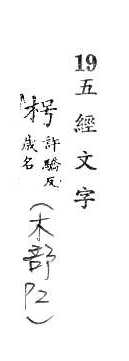 19五經文字
枵
許驕反
歲名
(木部P2)